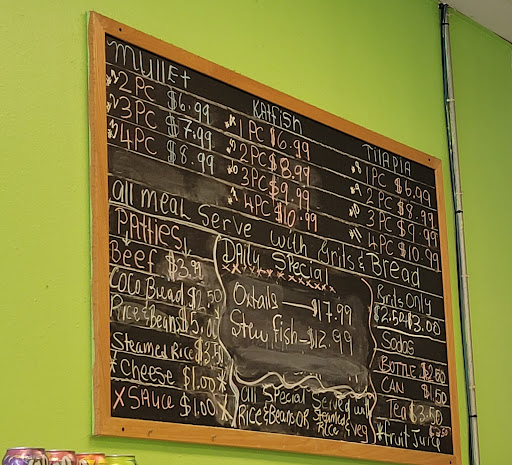 mullet
2 PC $6.99
3 PC $7.99
4 PC $8.99
KAtfish
1 PC $6.99
2 PC $8.99
3 PC $9.99
4 PC $10.99
TilAPIA
1 PC $6.99
2 PC $8.99
3 PC $9.99
4 PC $10.99
all meal Serve with Grits & Bread
PAttiesi
Beef $3.99
Coco Bread $2.50
Rice & Beans $5.00
Steamed Rice $3.50
* cheese $1.00 *
X SAUce $1.00 X
DAily Special
Oxtails — $17.99
Stew fish - $12.99
all Special Served with
Rice & Beans OR Steamed
Rice & veg
Grits Only
$2.50 $3.00
Sodas
BOTTLE $2.50
CAN $1.50
Tea $3.50
*fruit Juice $3.50